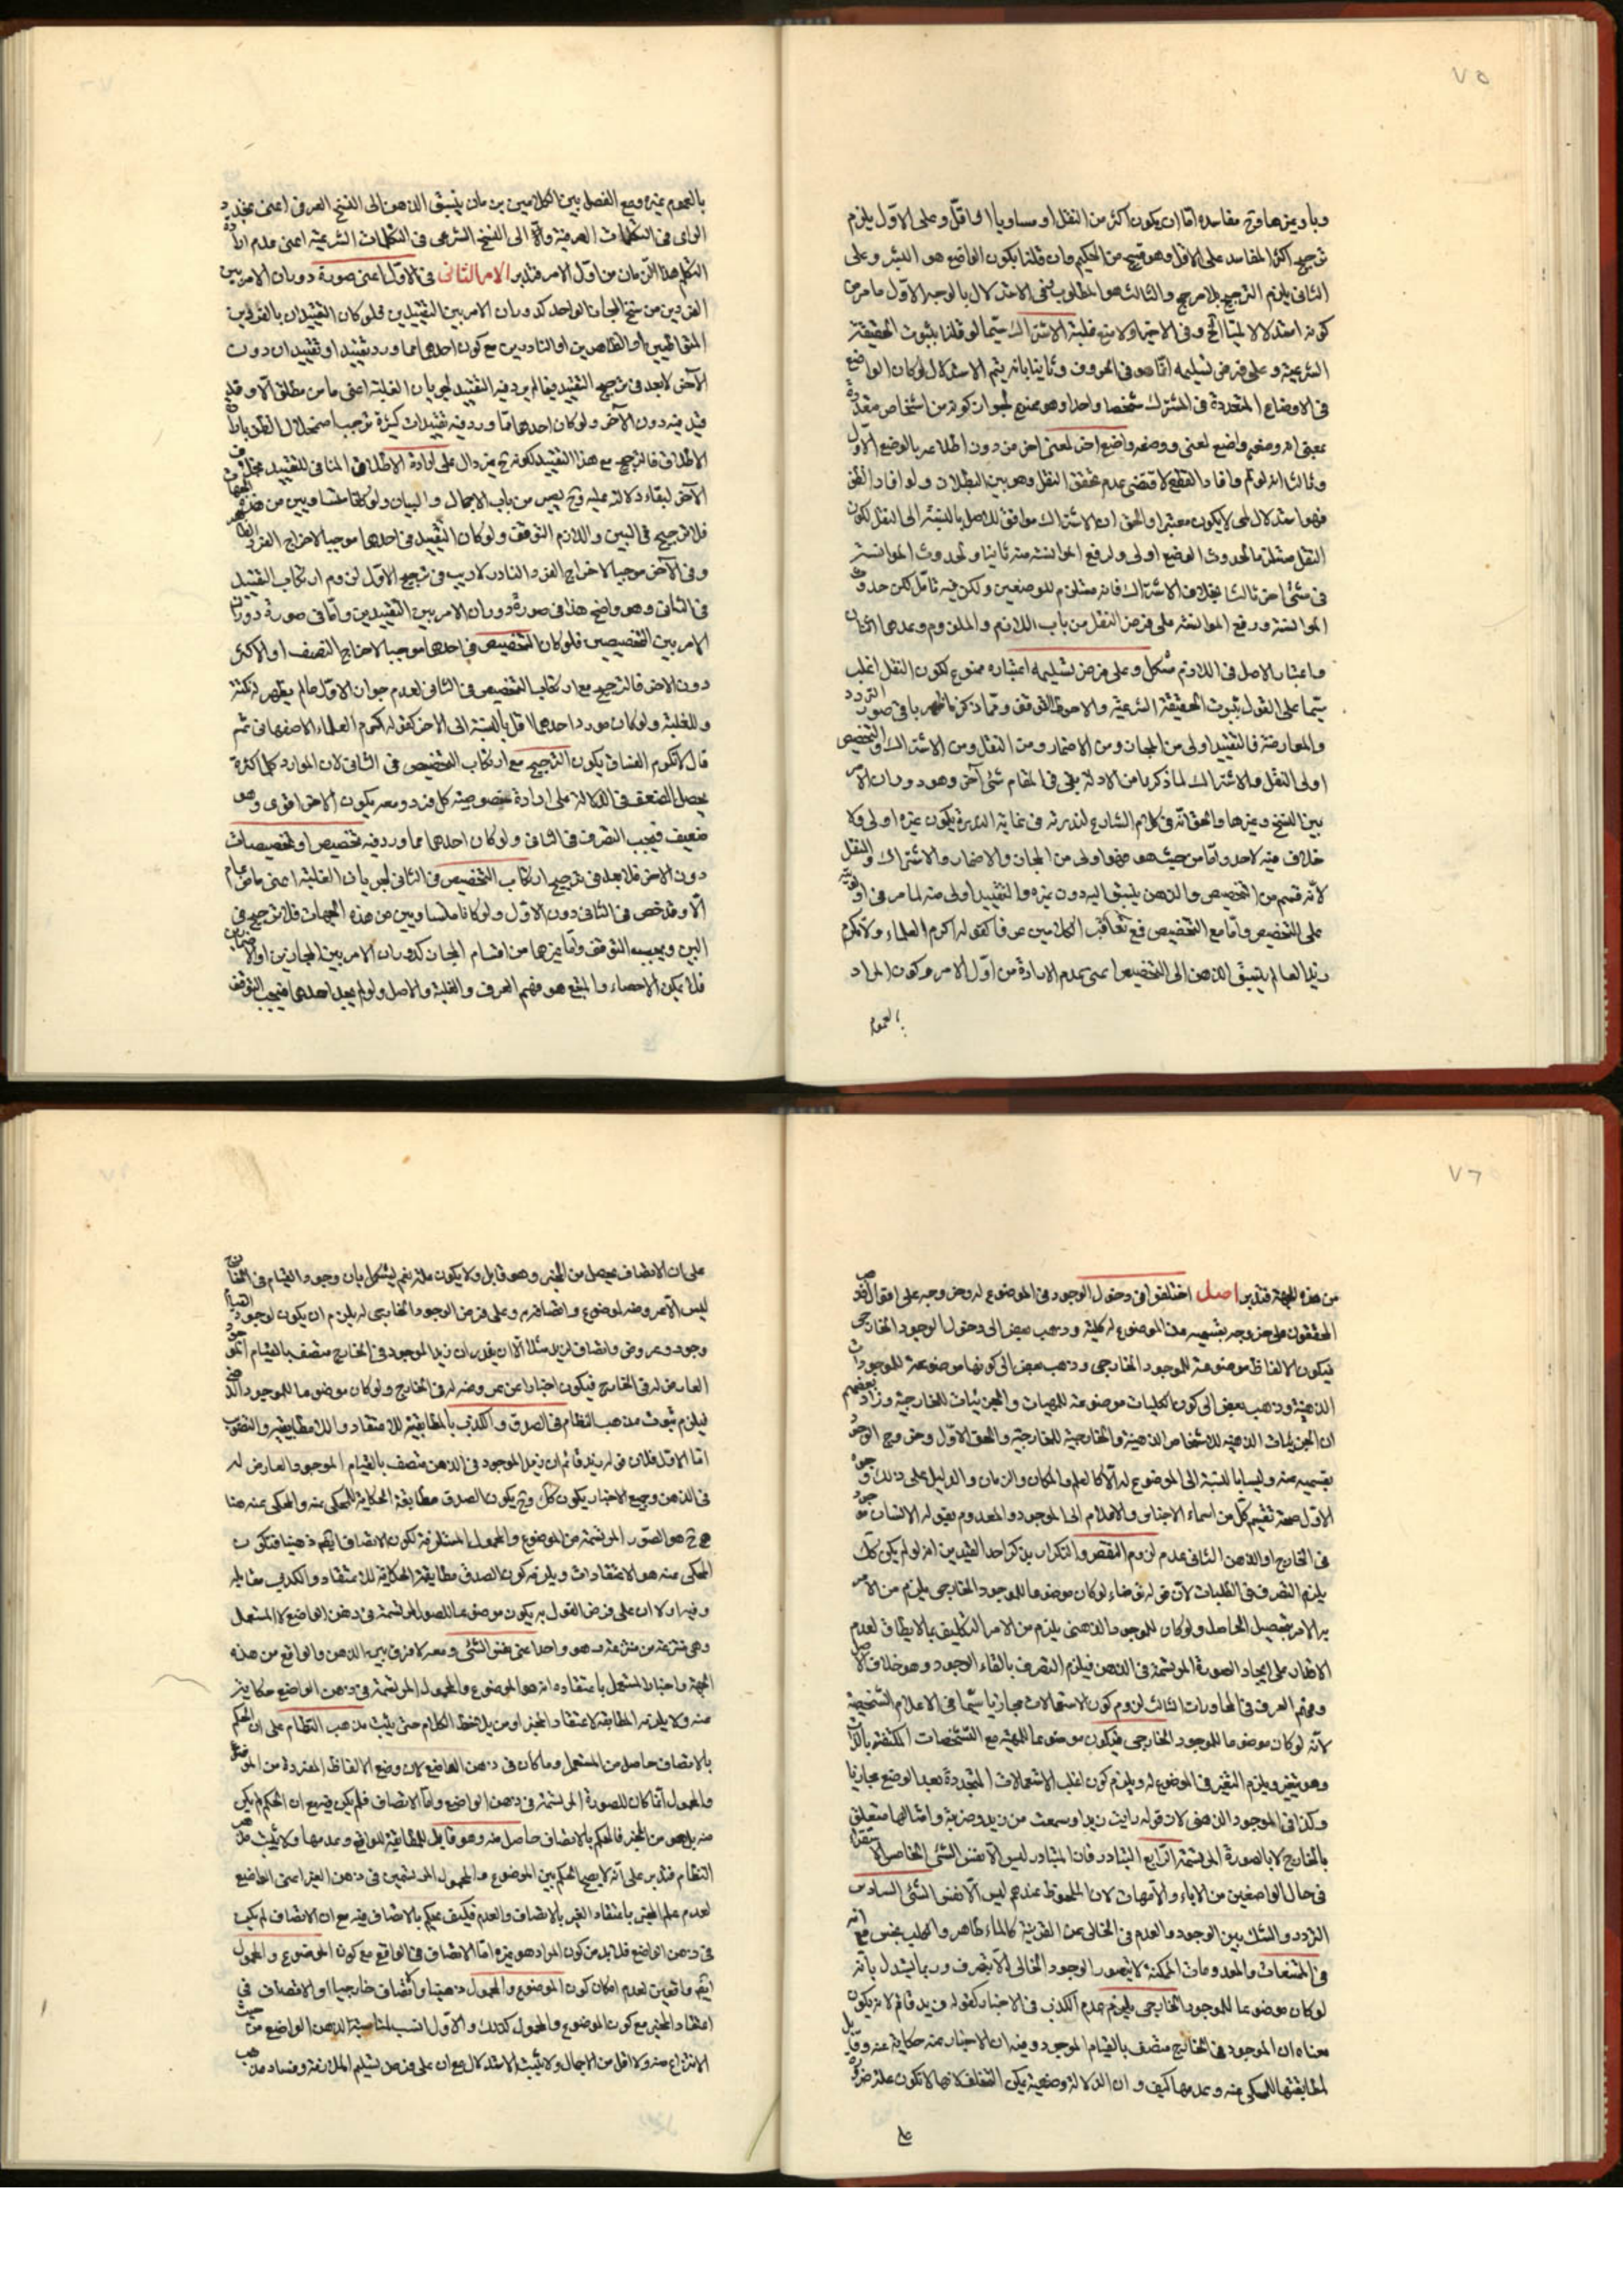 ٧٥
وباویزها وح مفاسده اما ان یکون اکثر من النقل او مساویا او اقل وعلی الاول یلزم
ترجیح اکثر المفاسد علی الاقل وهو قبیح من الحکیم وان قلنا بکون الواضع هو البشر وعلی
الثانی یلزم الترجیح بلا مرجح والثالث هو المطلوب ینفی الاستدلال بالوجه الاول ما مر من
کونه استدلالا لمیا الخ وفی الاخیر اولا منع غلبة الاشتراک سیما لو قلنا بثبوت الحقیقة
الشرعیة وعلی فرض تسلیمه انما هو فی الحروف وثانیا بانه یتم الاستدلال لو کان الواضع
فی الاوضاع المتعددة فی المشترک شخصا واحدا وهو ممنوع لجواز کونه من اشخاص متعددة
بمعنی انه وضعه واضع لمعنی ووضعه واضع اخر لمعنی اخر من دون اطلاعه بالوضع الاول
وثالثا انه لو تم وافاد القطع لاقتضی عدم تحقق النقل وهو بین البطلان ولو افاد الظن
فهو استدلال لمی لا یکون معتبرا والحق ان الاشتراک موافق للاصل بالنسبة الی النقل لکون
النقل مستلزما لحدوث الوضع اولی ولرفع الموانسة منه ثانیا ولحدوث الموانسة
فی شئ اخر ثالثا بخلاف الاشتراک فانه مستلزم للوضعین ولکن فیه تامل لکن حدوث
الموانسة ورفع الموانسة علی فرض النقل من باب اللازم والملزوم وعدهما اثنان
واعتبار الاصل فی اللازم مشکل وعلی فرض تسلیمه اعتباره ممنوع لکون النقل اغلب
سیما علی القول بثبوت الحقیقة الشرعیة والاحوط التوقف ومما ذکرنا ظهر باقی صور التردد
والمعارضة فالتقیید اولی من المجاز ومن الاضمار ومن النقل ومن الاشتراک والتخصیص
اولی النقل والاشتراک لما ذکرنا من الادلة بقی فی المقام شئ آخر وهو دوران الامر
بین النسخ وغیرها والحق انه فی کلام الشارع لندرته فی غایة الندرة یکون غیره اولی ولا
خلاف فیه لاحد واما من حیث هو فهو اولی من المجاز والاضمار والاشتراک والنقل
لانه قسم من التخصیص والذهن یسبق الیه دون غیره والتقیید اولی منه لما مر فی اولویته
علی التخصیص واما مع التخصیص فمع تعاقب الکلامین عرفا کقوله اکرم العلماء ولا تکرم
زیدا العالم یسبق الذهن الی التخصیص اعنی عدم الارادة من اول الامر وکون المراد
بالعموم
بالعموم غیره ومع الفصل بین الکلامین بزمان یسبق الذهن الی النسخ العرفی اعنی تجدید
الرای فی الکلمات العرفیة والا الی النسخ الشرعی فی الکلمات الشرعیة اعنی عدم ارادة
المتکلم هذا الزمان من اول الامر فتدبر الامر الثانی فی الاول اعنی صورة دوران الامر بین
الفردین من سنخ المجاز الواحد کدوران الامر بین التقییدین فلو کان التقییدان بالفردین
المتواطیین او الظاهرین او النادرین مع کون احدهما مما ورد تقیید او تقییدان دون
الآخر لا بعد فی ترجیح التقیید فیما لم یرد فیه التقیید لجریان الغلبة اعنی ما من مطلق الا وقد
قید فیه دون الآخر ولو کان احدهما مما ورد فیه تقییدات کثیرة توجب اضمحلال الظن بارادة
الاطلاق فالترجیح مع هذا التقیید لکونه ح غیر دال علی ارادة الاطلاق المنافی للتقیید بخلاف
الآخر لبقاء دلالته علیه وح یصیر من باب الاجمال والبیان ولو کانا متساویین من هذه الجهات
فلا ترجیح فی البین واللازم التوقف ولو کان التقیید فی احدهما موجبا لاخراج الفرد الظاهر
وفی الآخر موجبا لاخراج الفرد النادر لا ریب فی ترجیح الاول لزوم ارتکاب التقیید
فی الثانی وهو واضح هذا فی صورة دوران الامر بین التقییدین واما فی صورة دوران
الامر بین التخصیصین فلو کان التخصیص فی احدهما موجبا لاخراج النصف او الاکثر
دون الاخر فالترجیح مع ارتکاب التخصیص فی الثانی لعدم جواز الاول ما لم یظهر له نکتة
وللغلبة ولو کان مورد احدهما اقل بالنسبة الی الاخر کقوله اکرم العلماء الاصفهانی ثم
قال لا تکرم الفساق یکون الترجیح مع ارتکاب التخصیص فی الثانی لان الموارد کلما کثرة
یحصل الضعف فی الدلالة علی ارادة خصوصیة کل فرد ومعه یکون الاخر اقوی وهو
ضعیف فیجب التصرف فی الثانی ولو کان احدهما مما ورد فیه تخصیص او تخصیصات
دون الاخر فلا بعد فی ترجیح ارتکاب التخصیص فی الثانی لجریان الغلبة اعنی ما من عام
الا وقد خص فی الثانی دون الاول ولو کانا متساویین من هذه الجهات فلا ترجیح فی
البین ویجب التوقف واما غیرها من اقسام المجاز کدوران الامر بین المجازین او الاضمارین
فلا یمکن الاحصاء والمتبع هو فهم العرف والغلبة والاصل ولو لم یوجد احدهما فیجب التوقف
٧٦
من هذه الجهة فتدبر اصل اختلفوا فی دخول الوجود فی الموضوع له وخروجه علی اقوال فذهب
المحققون علی خروجه بقسمیه من الموضوع له کلیة وذهب بعض الی دخول الوجود الخارجی
فیکون الالفاظ موضوعة للموجود الخارجی وذهب بعض الی کونها موضوعة للموجودات
الذهنیة وذهب بعض الی کون الکلیات موضوعة للمهیات والجزئیات للخارجیة وزاد بعضهم
ان الجزئیات الذهنیة للاشخاص الذهنیة والخارجیة للخارجیة والحق الاول وخروج الوجود
بقسمیه عنه ولیسا بالنسبة الی الموضوع له الا کالعلم والمکان والزمان والدلیل علی ذلک وجوه
الاول صحة تقسیم کل من اسماء الاجناس والاعلام الی الموجود والمعدوم بقوله الانسان موجود
فی الخارج او الذهن الثانی عدم لزوم النقص والتکرار بذکر احد القیدین اذ لو لم یکن کذلک
یلزم التصرف فی الطلبات لان قوله توضاء لو کان موضوعا للموجود الخارجی یلزم من الامر
به الامر بتحصیل الحاصل ولو کان للموجود الذهنی یلزم من الامر التکلیف بما لا یطاق لعدم
الاقتدار علی ایجاد الصورة المرتسمة فی الذهن فیلزم التصرف بالقاء الوجود وهو خلاف الاصل
وفهم العرف فی المحاورات الثالث لزوم کون الاستعمالات مجازیا سیما فی الاعلام الشخصیة
لانه لو کان موضوعا للموجود الخارجی فیکون موضوعا للمهیة مع التشخصات المکتنفة بالذات
وهو متغیر ویلزم التغیر فی الموضوع له ویلزم کون اغلب الاستعمالات المتجددة بعد الوضع مجازیا
وکذا فی الموجود الذهنی لان قوله رایت زیدا وسمعت من زید وضربته وامثالها متعلق
بالخارج لا بالصورة المرتسمة الرابع التبادر فان المتبادر لیس الا نفس الشئ الخامس الاستقراء
فی حال الواضعین من الاباء والامهات لان الملحوظ عندهم لیس الا نفس الشئ السادس
التردد والشک بین الوجود والعدم فی الخالی عن القرینة کالماء طاهر والکلب نجس مع انه
فی الممتنعات والمعدومات الممکنة لا یتصور الوجود الخالی الا بتصرف وربما یستدل بانه
لو کان موضوعا للموجود الخارجی یلزم عدم الکذب فی الاخبار کقوله زید قائم لانه یکون
معناه ان الموجود فی الخارج متصف بالقیام الموجود وفیه ان الاخبار عنه حکایة عنه وقابل
لمطابقتها للمحکی عنه وعدمها کیف وان الدلالة وضعیة یمکن التخلف لانها لا تکون علة ضرورة
علی
علی ان الاتصاف یحصل من المخبر وهو قابل ولا یکون علة نعم یشکل بان وجود القیام فی الخارج
لیس الا عروضه لموضوع واتصافه به وعلی فرض الوجود الخارجی له یلزم ان یکون لوجود القیام
وجود وعروض واتصاف لزید مثلا الا ان یقدر ان زیدا الموجود فی الخارج متصف بالقیام الموجود
العارض له فی الخارج فیکون اخبارا عن عروضه له فی الخارج ولو کان موضوعا للموجود الذهنی
فیلزم ثبوت مذهب النظام فی الصدق والکذب بالمطابقیة للاعتقاد واللامطابقیة والتصویب
اما الاول فلان قوله زید قائم ان زیدا الموجود فی الذهن متصف بالقیام الموجود العارض له
فی الذهن وجمیع الاخبار یکون کک وح یکون الصدق مطابقة الحکایة للمحکی عنه والمحکی عنه هنا
ح هو الصور المرتسمة من الموضوع والمحمول المستلزمة لکون الاتصاف ایکم ذهنیا فتکون
المحکی عنه هو الاعتقادات ویلزمه کون الصدق مطابقة الحکایة للاعتقاد والکذب مقابله
وفیه اولا ان علی فرض القول به یکون موضوعا للصور المرتسمة فی ذهن الواضع لا المستعمل
وهی منتزعة من منتزعة وهو واحد اعنی نفس الشئ ومعه لا فرق بین الذهن والواقع من هذه
الجهة واخبار المستعمل باعتقاده انه هو الموضوع والمحمول المرتسمة فی ذهن الواضع حکایة
عنه ولا یلزمه المطابقة لاعتقاد المخبر او من یلاحظ الکلام حتی یثبت مذهب النظام علی ان الحکم
بالاتصاف حاصل من المستعمل وما کان فی ذهن الواضع لان وضع الالفاظ المفردة من الموضوع
والمحمول انما کان للصورة المرتسمة فی ذهن الواضع واما الاتصاف فلم یکن فیه مع ان الحکم لم یکن
منه بل هو من المخبر فالحکم بالاتصاف حاصل منه وهو قابل للمطابقیة للواقع وعدمها ولا یثبت مذهب
النظام فتدبر علی انه لا یصح الحکم بین الموضوع والمحمول المرتسمین فی ذهن الغیر اعنی الواضع
لعدم علم المخبر باعتقاد الغیر بالاتصاف والعدم فکیف یحکم بالاتصاف فیه مع ان الاتصاف لم یکن
فی ذهن الواضع فلا بد من کون المراد هو غیره اما الاتصاف فی الواقع مع کون الموضوع والمحمول
ایضا واقعین لعدم امکان کون الموضوع والمحمول ذهنیا واتصاف خارجیا او الاتصاف فی
اعتقاد المخبر مع کون الموضوع والمحمول کذلک والاول انسب لمناسبة الذهن الواضع من حیث
الانتزاع عنه ولا اقل من الاجمال ولا یثبت الاستدلال مع ان علی فرض تسلیم الملازمة وفساد مذهب